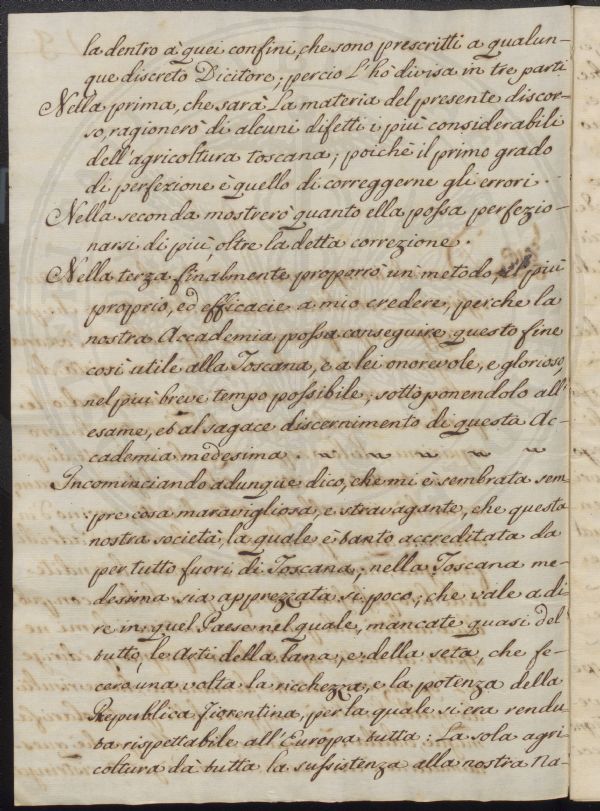 la dentro à quei confini, che sono prescritti a qualun-
que discreto Dicitore; percio L'hò divisa in tre parti
Nella prima, che sarà La materia del presente discor-
so, ragionerò di alcuni difetti i più considerabili
dell'agricoltura toscana; poichè il primo grado
di perfezione è quello di correggerne gli errori.
Nella seconda mostrerò quanto ella possa perfezio-
narsi di più, oltre la detta correzione.
Nella terza finalmente proporrò un metodo, il più
proprio, ed efficacie a mio credere, perche la
nostra Accademia possa conseguire questo fine
così utile alla Toscana, e a lei onorevole, e glorioso,
nel più breve tempo possibile; sottoponendolo all'
esame, ed al sagace discernimento di questa Ac-
cademia medesima.
Incominciando adunque dico, che mi è sembrata sem-
pre cosa maravigliosa, e stravagante, che questa
nostra società, la quale è tanto accreditata da
per tutto fuori di Toscana; nella Toscana me-
desima sia apprezzata si poco; che vale a di
re in quel Paese nel quale, mancate quasi del
tutto, le Arti della lana, e della seta, che fe-
cero una volta la ricchezza, e la potenza della
Republica Fiorentina, per la quale si era rendu-
ta rispettabile all'Europa tutta: La sola agri
coltura dà tutta la sussistenza alla nostra Na-